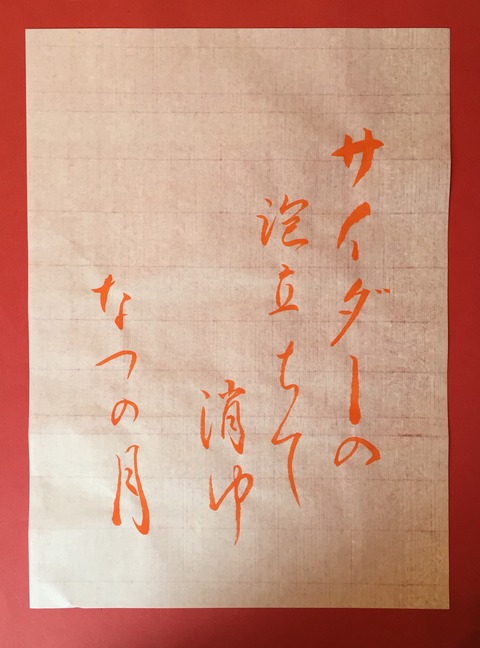 サイダーの
泡立ちて
消ゆ
なつの月